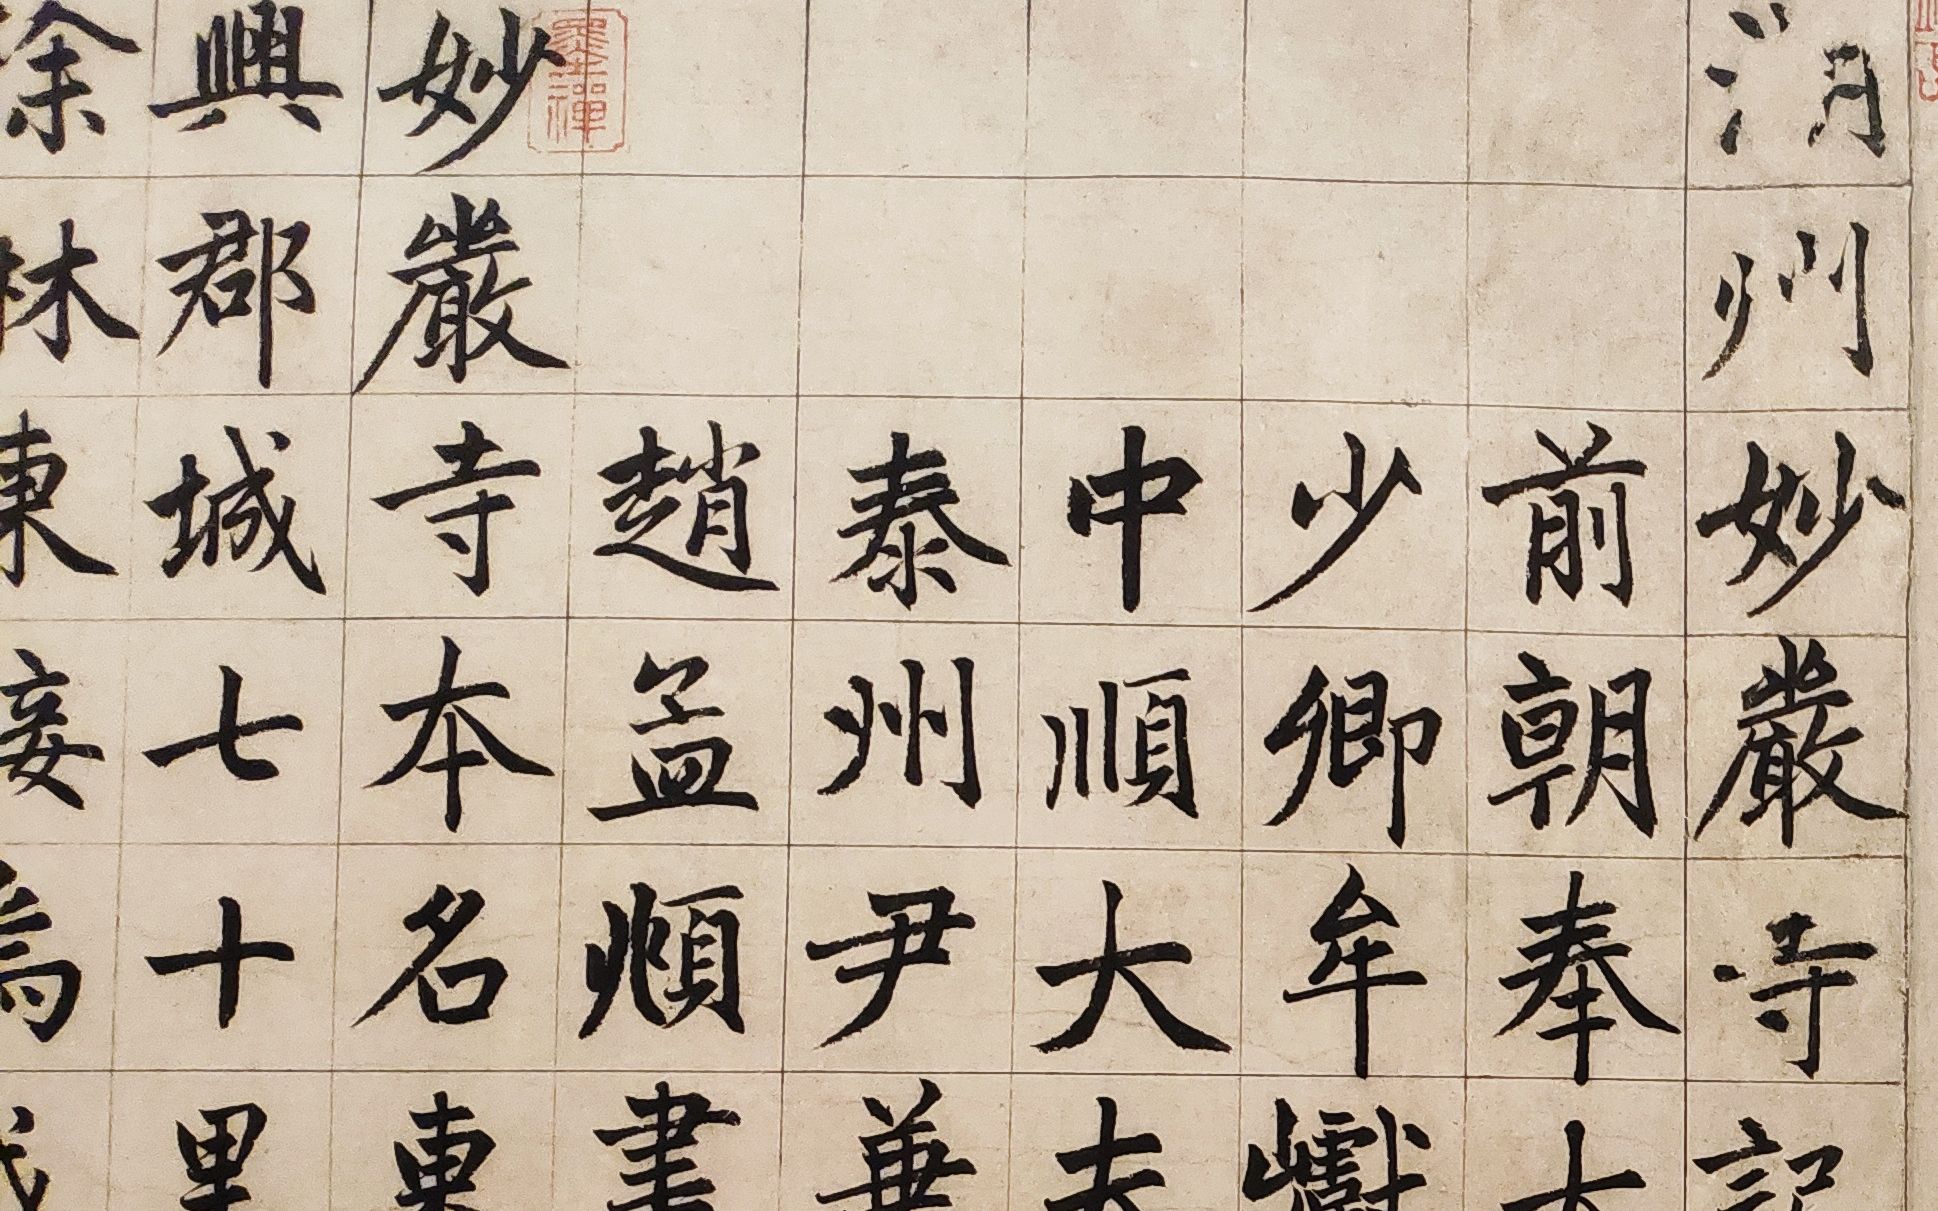 湖州妙嚴寺記
前朝奉大
少卿牟巘
中順大夫
泰州尹兼
趙孟頫書
妙嚴寺本名東
興郡城七十里
徐林東接爲
墨禪